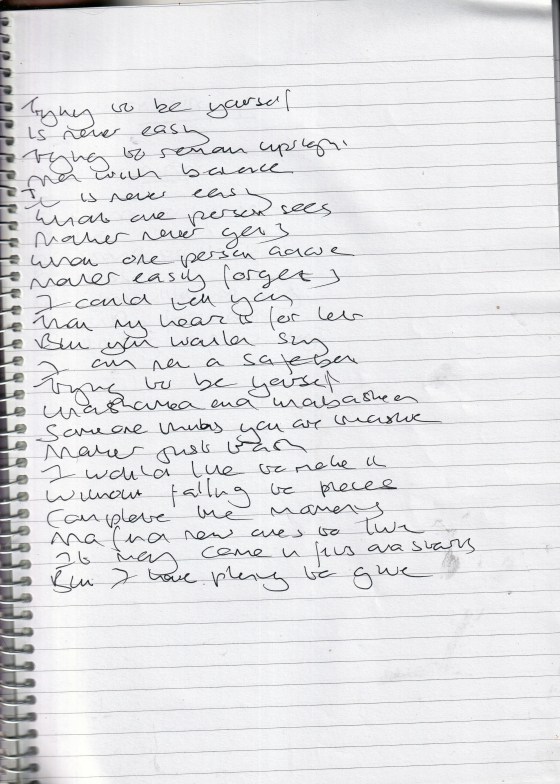 Trying to be yourself
is never easy
Trying to remain upright
And with balance
It is never easy
What one person sees
Another never gets
What one person
Another easily forgets
I could tell you
That my heart is for
But you would say
I am not a safe bet
Trying to be yourself
Unashamed and unabashed
Someone thinks you are
Another just trash
I would like to make it
Without falling to pieces
Complete the memories
And find new ones to live
It may come in fits and starts
But I have plenty to give